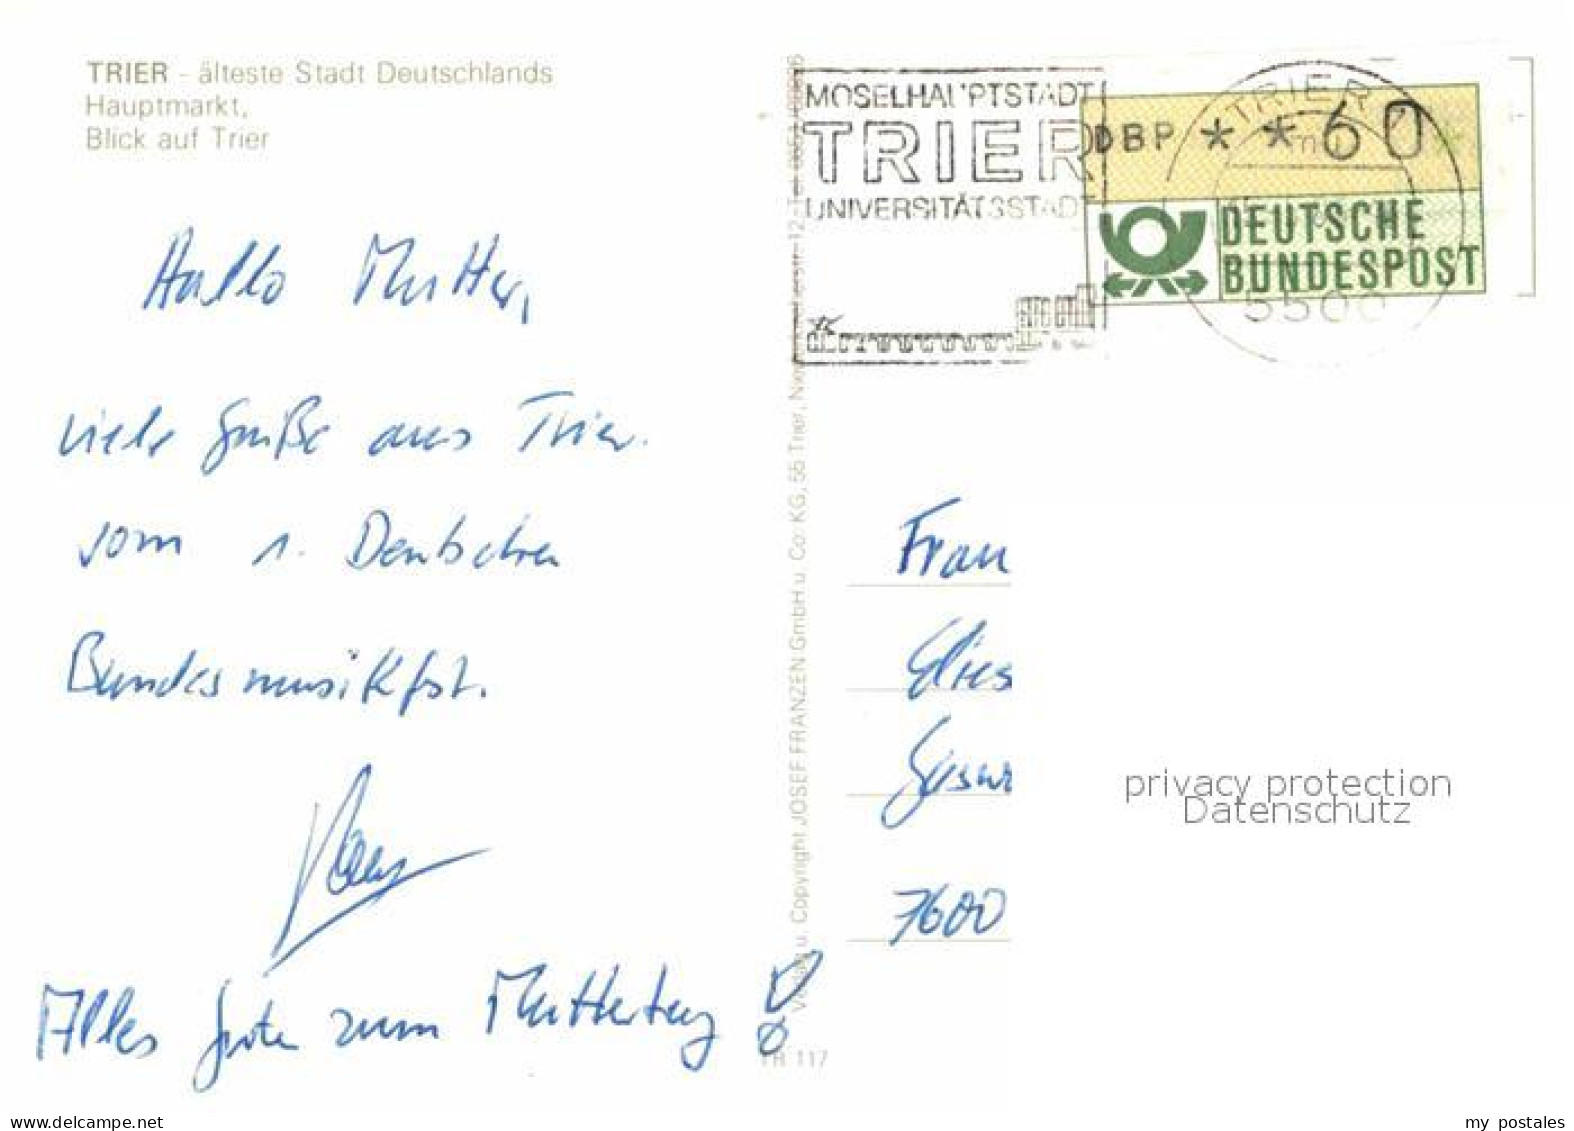 TRIER - älteste Stadt Deutschlands
Hauptmarkt,
Blick auf Trier
Hallo Mutter,
viele Grüße aus Trier.
vom 1. Deutschen
Bundesmusikfst.
Alles Gute zum Muttertag !
MOSELHAUPTSTADT
TRIER
UNIVERSITÄTSSTADT
TRIER
5500
DBP * * 60
DEUTSCHE
BUNDESPOST
Verlag u. Copyright JOSEF FRANZEN GmbH u. Co. KG, 55 Trier,
TR 117
Frau
7600
privacy protection
Datenschutz
www.delcampe.net
my postales